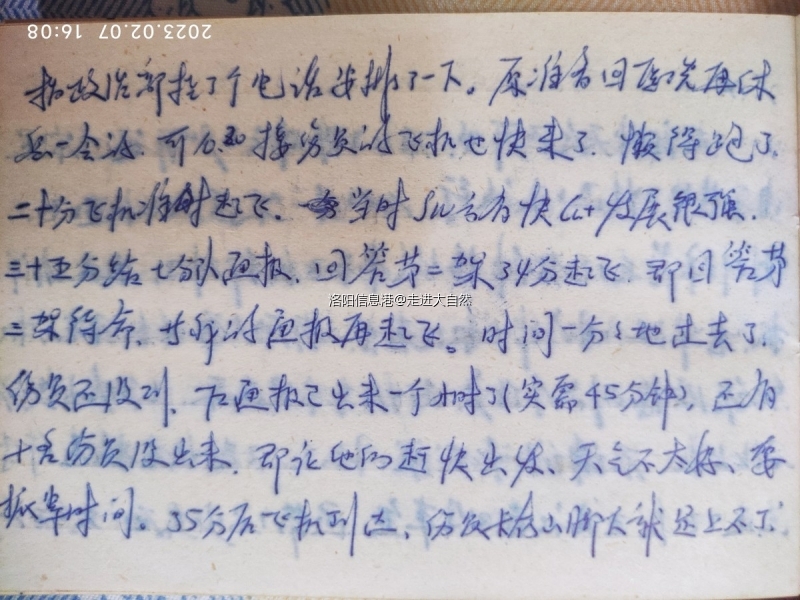 2023.02.07 16:08
拐政治部挂了个电话安排了一下。原准备回医院再休
息一会的,可为接伤员的飞机也快来了,懒得跑了。
二十分飞机准时起飞,当时SW方有快Cu+发展很强,
三十五分给七分队通报,回答第二架34分起飞,即回答第
三架待命,等我的通报再起飞。时间一分分地过去了,
洛阳信息港@走进大自然
伤员还没到,下通报已出来一个小时了(实需45分钟),还有
十名伤员没出来,即让他们赶快出发,天气不太好,要
抓紧时间。35分后飞机到达,伤员大山脚下就是上不了